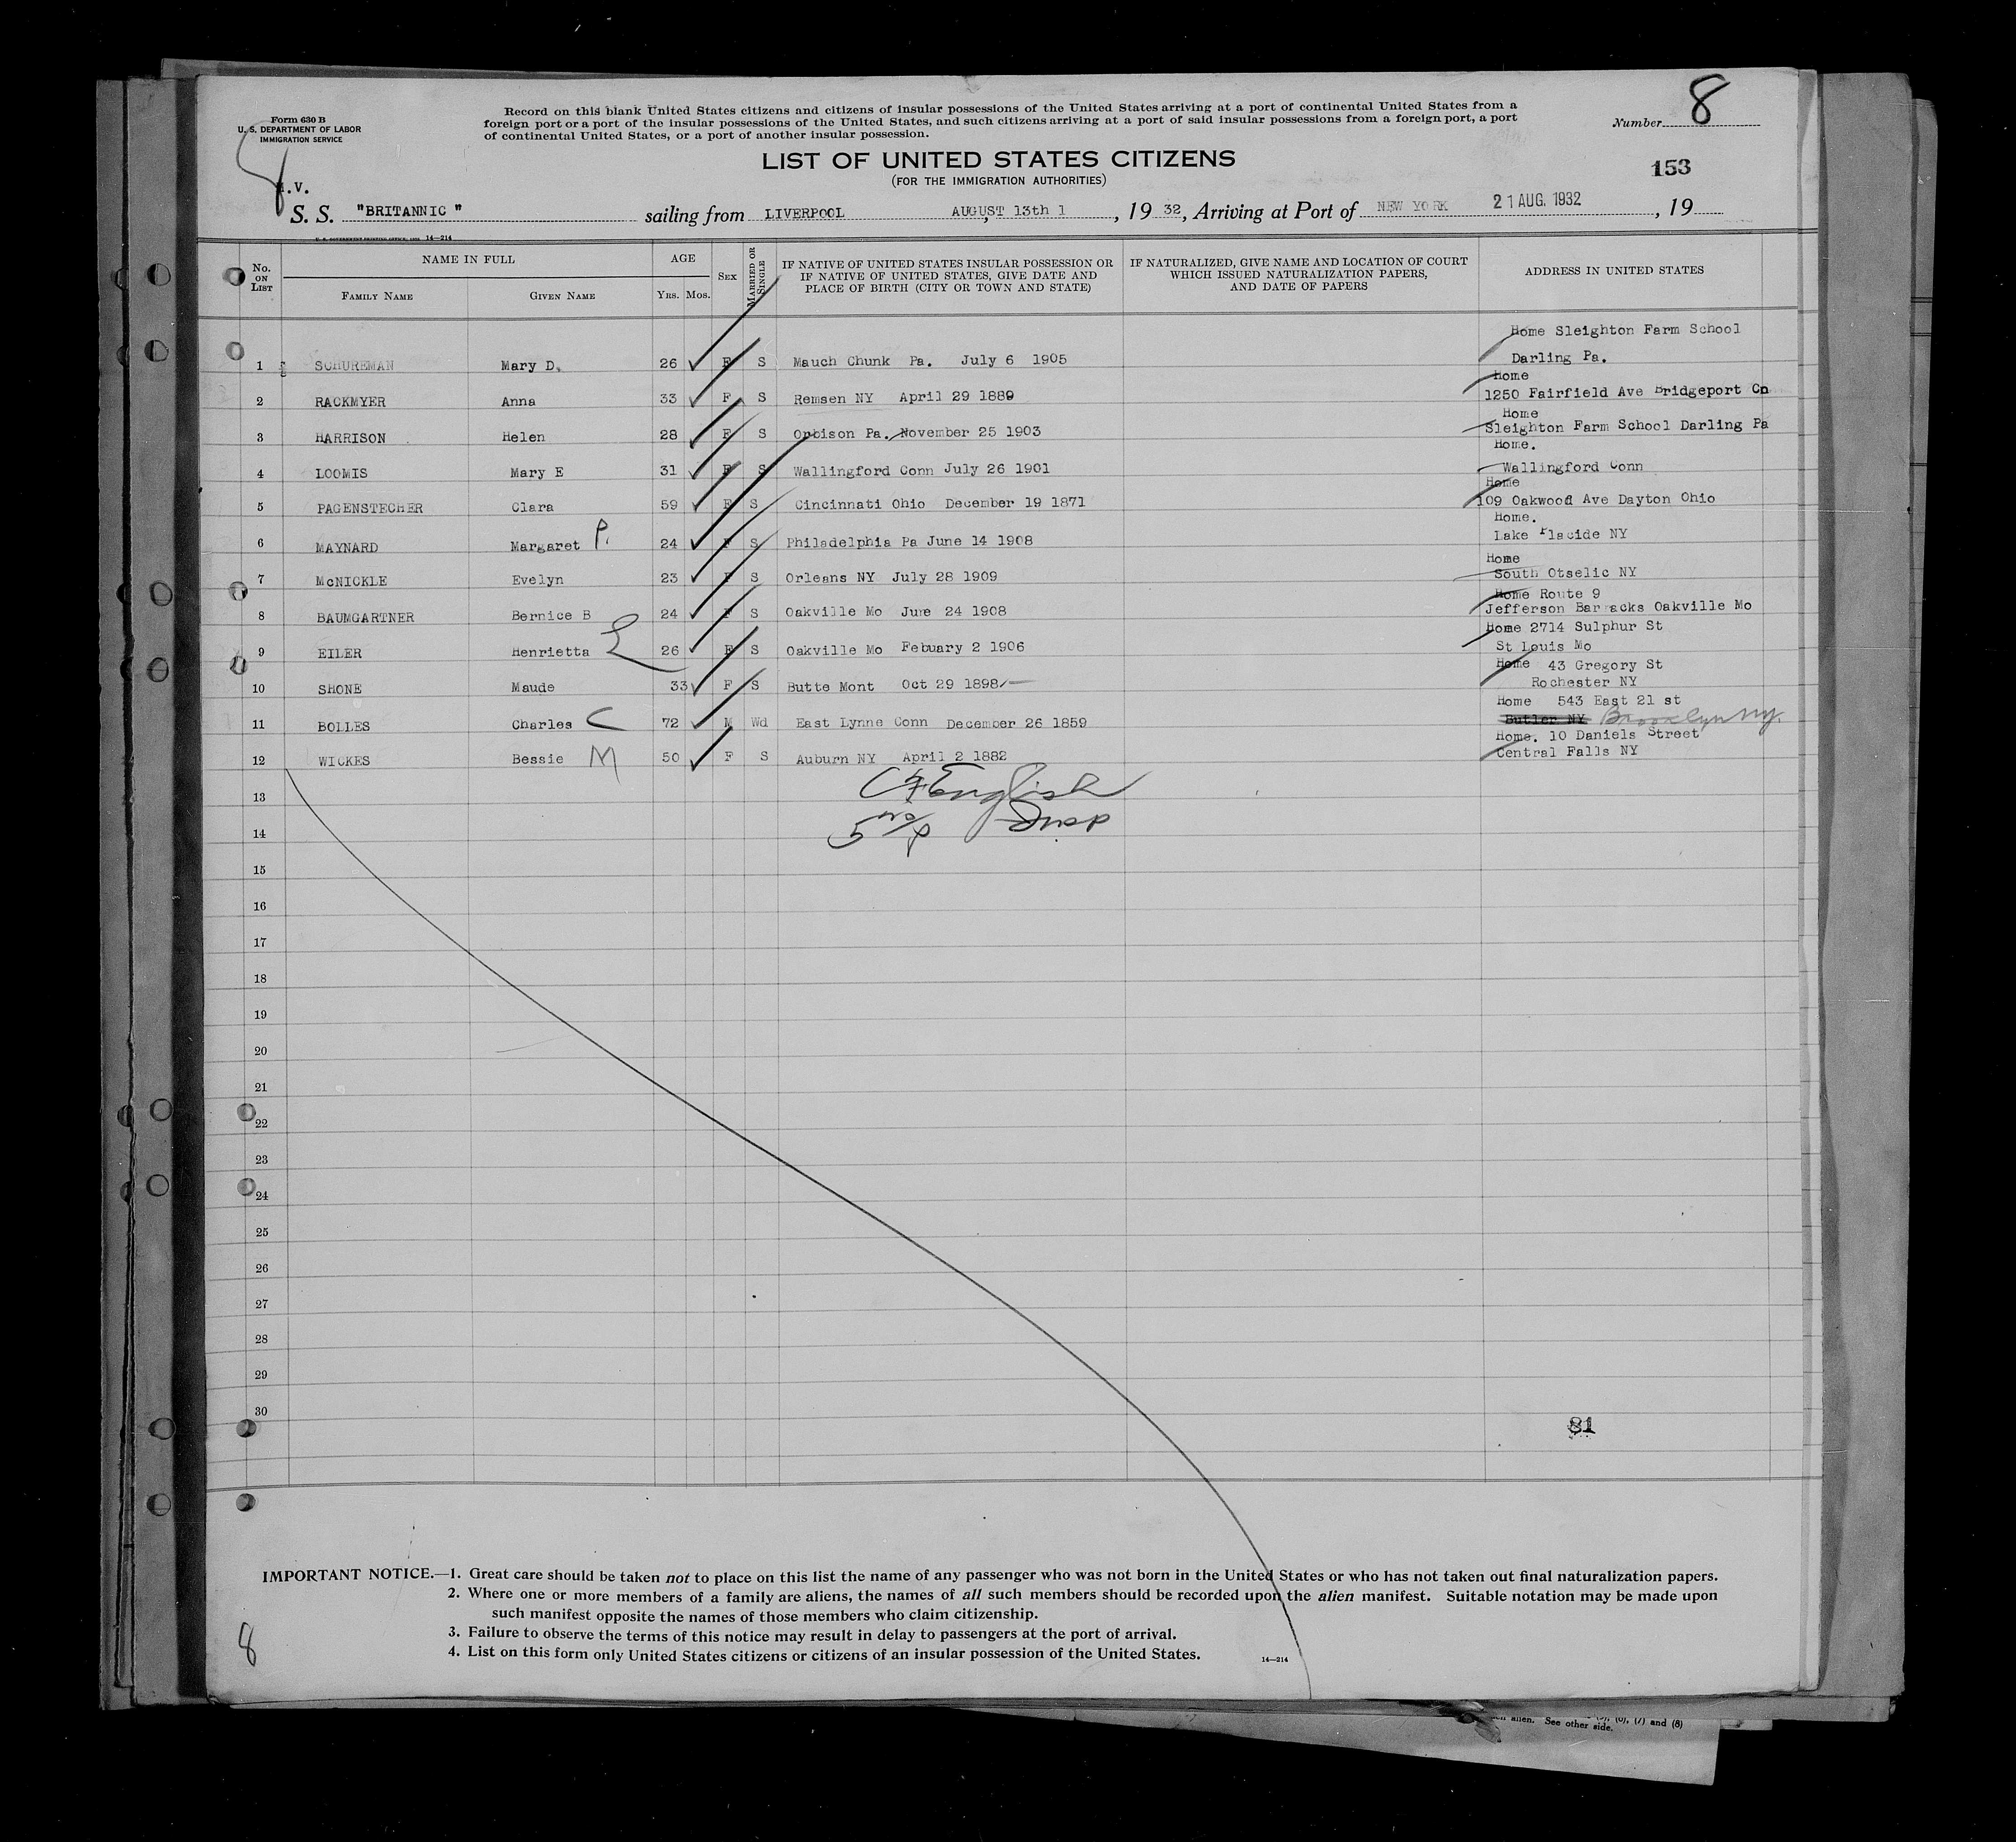 Form 630 B
U. S. DEPARTMENT OF LABOR
IMMIGRATION SERVICE
Record on this blank United States citizens and citizens of insular possessions of the United States arriving at a port of continental United States from a
foreign port or a port of the insular possessions of the United States, and such citizens arriving at a port of said insular possessions from a foreign port, a port
of continental United States, or a port of another insular possession.
Number 8
LIST OF UNITED STATES CITIZENS
(FOR THE IMMIGRATION AUTHORITIES)
153
.V.
S. S. "BRITANNIC" sailing from LIVERPOOL AUGUST 13th 1, 19 32, Arriving at Port of NEW YORK 21 AUG. 1932, 19
U. S. GOVERNMENT PRINTING OFFICE 14—214
No. ON LIST
NAME IN FULL
FAMILY NAME GIVEN NAME
AGE
YRS. MOS.
SEX
MARRIED OR SINGLE
IF NATIVE OF UNITED STATES INSULAR POSSESSION OR
IF NATIVE OF UNITED STATES, GIVE DATE AND
PLACE OF BIRTH (CITY OR TOWN AND STATE)
IF NATURALIZED, GIVE NAME AND LOCATION OF COURT
WHICH ISSUED NATURALIZATION PAPERS,
AND DATE OF PAPERS
ADDRESS IN UNITED STATES
Home Sleighton Farm School
1 SCHUREMAN Mary D. 26 F S Mauch Chunk Pa. July 6 1905 Darling Pa.
Home
2 RACKMYER Anna 33 F S Remsen NY April 29 1889 1250 Fairfield Ave Bridgeport Cn
Home
3 HARRISON Helen 28 F S Orbison Pa. November 25 1903 Sleighton Farm School Darling Pa
Home.
4 LOOMIS Mary E 31 F S Wallingford Conn July 26 1901 Wallingford Conn
Home
5 PAGENSTECHER Clara 59 F S Cincinnati Ohio December 19 1871 109 Oakwood Ave Dayton Ohio
Home.
6 MAYNARD Margaret P. 24 F S Philadelphia Pa June 14 1908 Lake Placide NY
Home
7 McNICKLE Evelyn 23 F S Orleans NY July 28 1909 South Otselic NY
Home Route 9
8 BAUMGARTNER Bernice B 24 F S Oakville Mo June 24 1908 Jefferson Barracks Oakville Mo
Home 2714 Sulphur St
9 EILER Henrietta E 26 F S Oakville Mo Febuary 2 1906 St Louis Mo
Home 43 Gregory St
10 SHONE Maude 33 F S Butte Mont Oct 29 1898 Rochester NY
Home 543 East 21 st
11 BOLLES Charles C 72 M Wd East Lynne Conn December 26 1859 Butler NY Brooklyn NY.
Home. 10 Daniels Street
12 WICKES Bessie M 50 F S Auburn NY April 2 1882 Central Falls NY
English
13
14
15
16
17
18
19
20
21
22
23
24
25
26
27
28
29
30
81
IMPORTANT NOTICE.—1. Great care should be taken not to place on this list the name of any passenger who was not born in the United States or who has not taken out final naturalization papers.
2. Where one or more members of a family are aliens, the names of all such members should be recorded upon the alien manifest. Suitable notation may be made upon
such manifest opposite the names of those members who claim citizenship.
3. Failure to observe the terms of this notice may result in delay to passengers at the port of arrival.
4. List on this form only United States citizens or citizens of an insular possession of the United States.
14—214
8
alien. See other side. (6), (7) and (8)